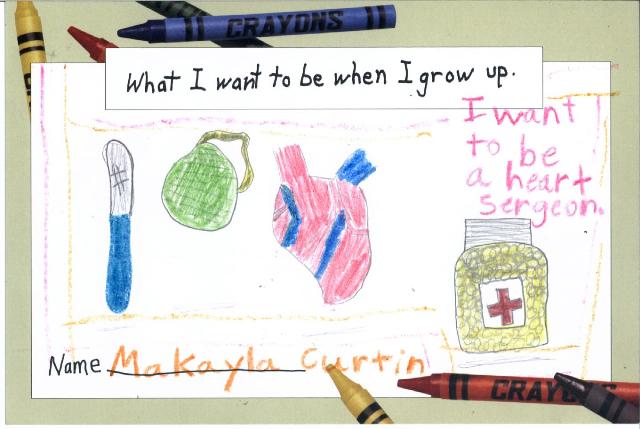 CRAYONS
What I want to be when I grow up.
I want
to be
a heart
sergeon.
Name Makayla Curtin
CRAYO